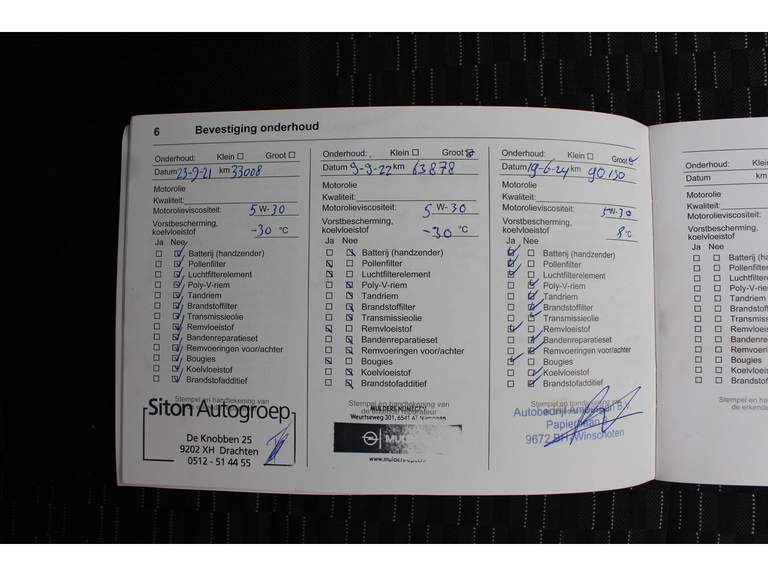 6 Bevestiging onderhoud
Onderhoud: Klein ☐ Groot ☐
Datum 23-9-21 km 33008
Motorolie
Kwaliteit:
Motorolieviscositeit: 5 W- 30
Vorstbescherming,
koelvloeistof -30 °C
Ja Nee
Batterij (handzender)
Pollenfilter
Luchtfilterelement
Poly-V-riem
Tandriem
Brandstoffilter
Transmissieolie
Remvloeistof
Bandenreparatieset
Remvoeringen voor/achter
Bougies
Koelvloeistof
Brandstofadditief
Stempel en handtekening van
Siton Autogroep
De Knobben 25
9202 XH Drachten
0512 - 51 44 55
Onderhoud: Klein ☐ Groot ☑
Datum 9-9-22 km 63878
Motorolie
Kwaliteit:
Motorolieviscositeit: 5 W- 30
Vorstbescherming,
koelvloeistof -30 °C
Ja Nee
Batterij (handzender)
Pollenfilter
Luchtfilterelement
Poly-V-riem
Tandriem
Brandstoffilter
Transmissieolie
Remvloeistof
Bandenreparatieset
Remvoeringen voor/achter
Bougies
Koelvloeistof
Brandstofadditief
Stempel en handtekening van
MULDERS NIJMEGEN
Weurtseweg 301, 6541
Onderhoud: Klein ☐ Groot ☑
Datum 19-6-24 km 90130
Motorolie
Kwaliteit:
Motorolieviscositeit: 5W-30
Vorstbescherming,
koelvloeistof °C
Ja Nee
Batterij (handzender)
Pollenfilter
Luchtfilterelement
Poly-V-riem
Tandriem
Brandstoffilter
Transmissieolie
Remvloeistof
Bandenreparatieset
Remvoeringen voor/achter
Bougies
Koelvloeistof
Brandstofadditief
Stempel en handtekening van
de erkende reparateur
Autobedrijf B.V.
9672 BH Winschoten
Onderhoud: Klein
Datum km
Motorolie
Kwaliteit:
Motorolieviscositeit:
Vorstbescherming,
koelvloeistof
Ja Nee
Batterij
Pollenfilter
Poly-V-riem
Tandriem
Transmissieolie
Remvloeistof
Bougies